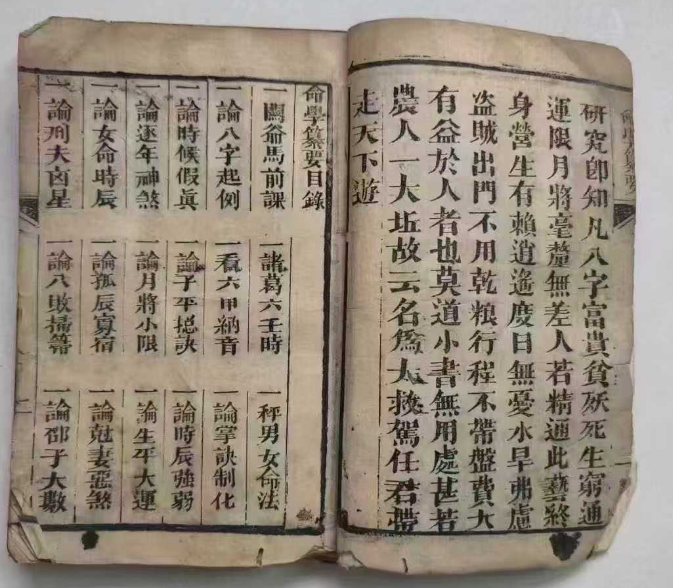 命學纂要
研究即知凡八字富貴貧殀死生窮通
運限月將毫釐無差人若精通此藝終
身營生有賴逍遙度日無憂水旱弗慮
盗賊出門不用乾粮行程不帶盤費大
有益於人者也莫道小書無用處甚若
農人一大坵故云名爲大救駕任君帶
走天下遊
命學纂要目錄
一關爺馬前課 一諸葛六壬時 一秤男女命法
一論八字起例 一看六甲納音 一論掌訣制化
一論時候假眞 一論子平揔訣 一論時辰強弱
一論逐年神煞 一論月將小限 一論生平大運
一論女命時辰 一論孤辰寡宿 一論尅妻惡煞
一論刑夫凶星 一論八敗掃箒 一論邵子大數